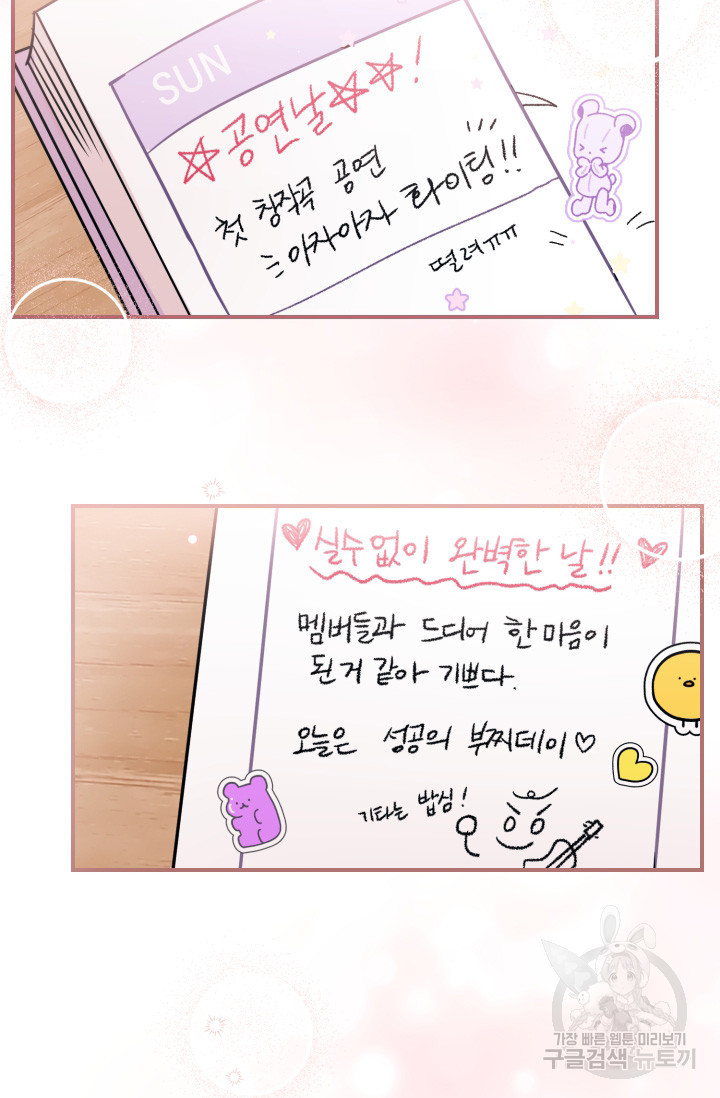 SUN
☆공연날☆☆!
첫 창작곡 공연
아자아자 화이팅!!
떨려ㅠㅠ
♡실수없이 완벽한 날!!♡
멤버들과 드디어 한마음이
된거 같아 기쁘다.
오늘은 성공의 부찌데이♡
기타는 밥심!
가장 빠른 웹툰 미리보기
구글검색 뉴토끼